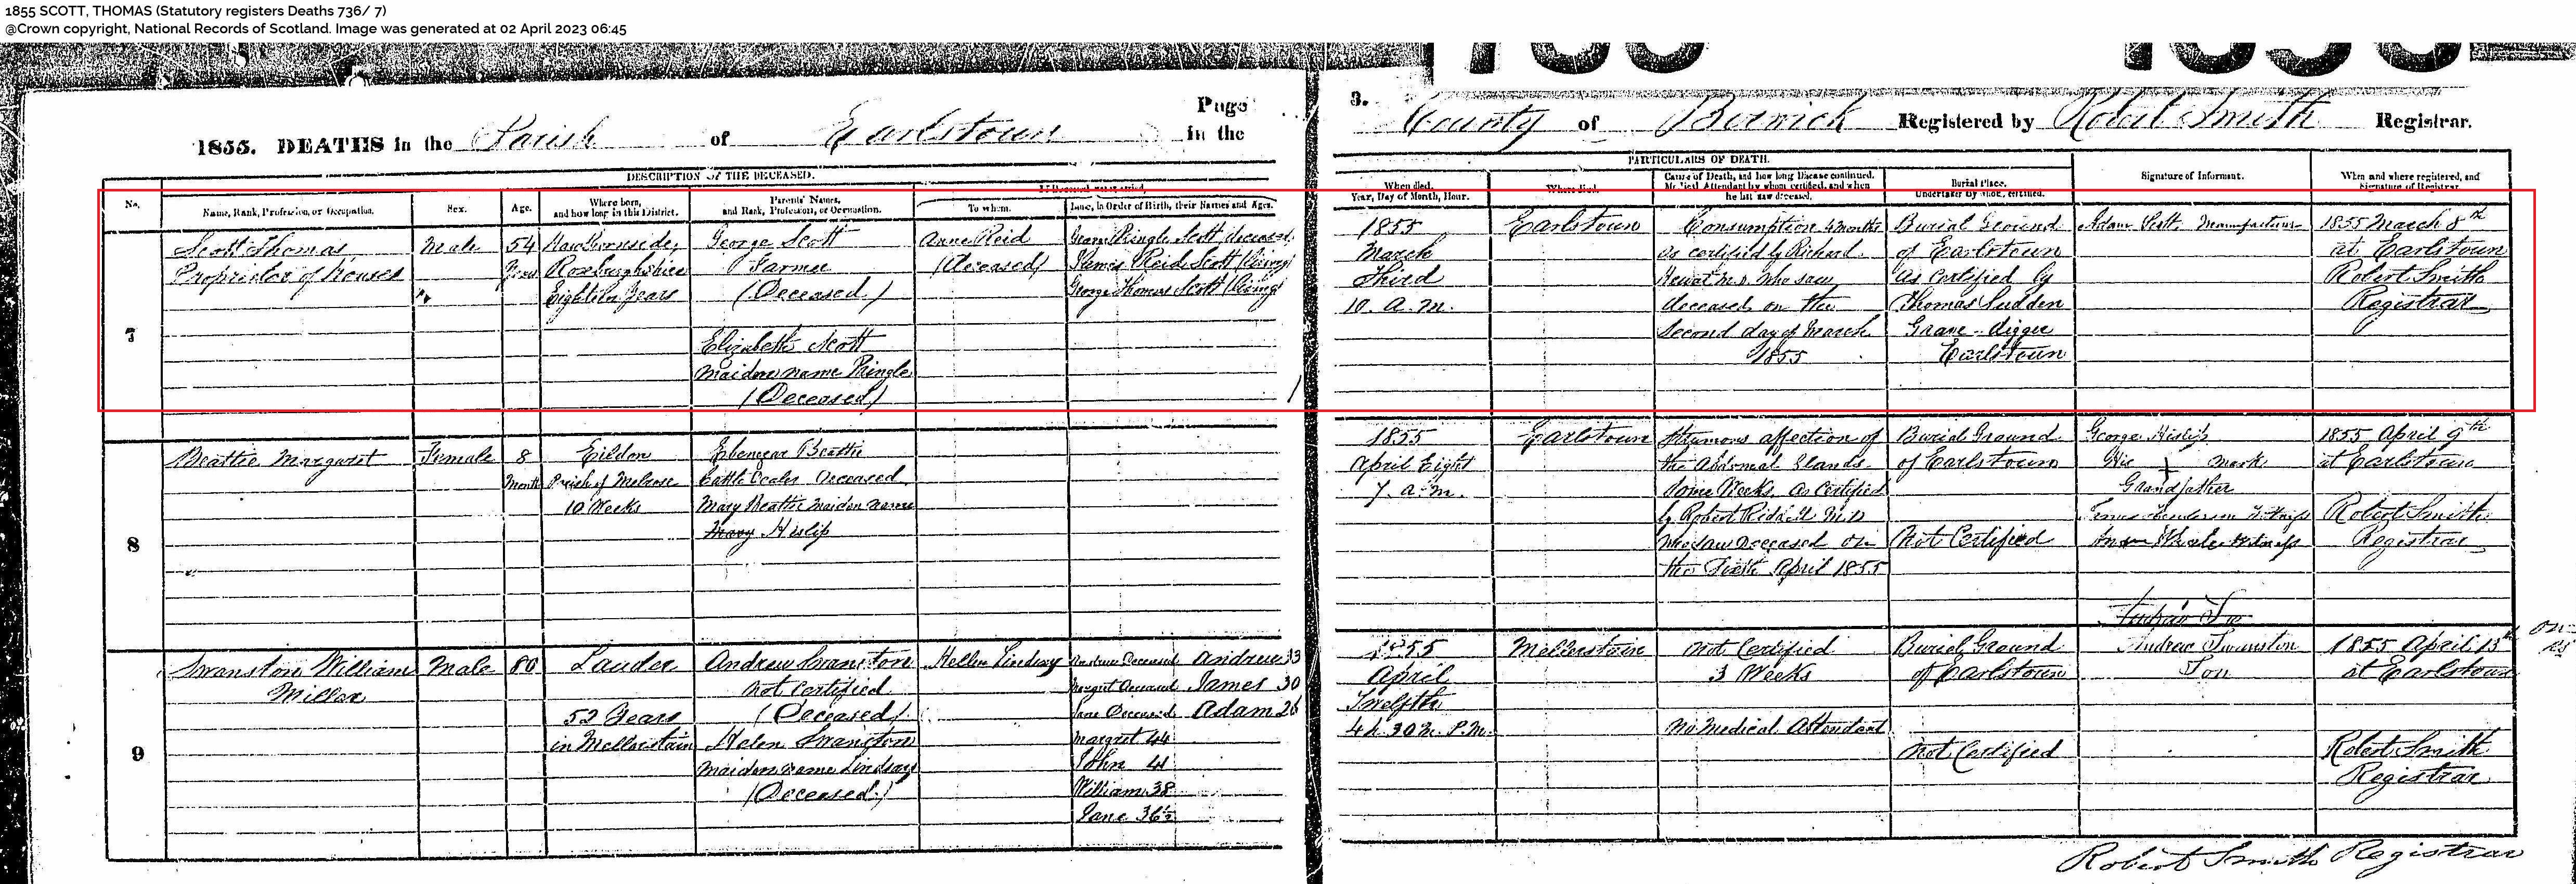 1855 SCOTT, THOMAS (Statutory registers Deaths 736/ 7)
@Crown copyright, National Records of Scotland. Image was generated at 02 April 2023 06:45
Page 3.
1855. DEATHS in the Parish of Earlstoun in the County of Berwick Registered by Robert Smith Registrar.
DESCRIPTION OF THE DECEASED.
PARTICULARS OF DEATH.
No.
Name, Rank, Profession, or Occupation.
Sex.
Age.
Where born,
and how long in this District.
Parents' Names,
and Rank, Profession, or Occupation.
If Deceased was married,
To whom.
Issue, in Order of Birth, their Names and Ages.
When died.
Year, Day of Month, Hour.
Where died.
Cause of Death, and how long Disease continued.
Medical Attendant by whom certified, and when
he last saw deceased.
Burial Place.
Undertaker by whom certified.
Signature of Informant.
When and where registered, and
Signature of Registrar.
7
Scott Thomas
Proprietor of Houses
Male
54
Years
Roxburghshire
Eighteen Years
George Scott
Farmer
(Deceased)
Elizabeth Scott
maiden name Pringle
(Deceased)
Anne Reid
(Deceased)
George Pringle Scott deceased
James Reid Scott (living)
George Thomas Scott (living)
1855
March
Third
10. a.m.
Earlstoun
Consumption 4 months
as certified by Richard
M.D. who saw
deceased on the
Second day of March
1855
Burial Ground
of Earlstoun
as Certified by
Thomas Sudden
Grave-digger
Earlstoun
Adam Scott Manufacturer
1855 March 8th
at Earlstoun
Robert Smith
Registrar
8
Beattie Margaret
Female
8
Months
Eildon
Parish of Melrose
10 Weeks
Ebenezer Beattie
Cattle Dealer Deceased
Mary Beattie maiden name
Mary Hislip
1855
April Eight
7. a.m.
Earlstoun
Strumous affection of
the Abdominal Glands
Some Weeks as Certified
by Robert M.D
who saw Deceased on
the Sixth April 1855
Burial Ground
of Earlstoun
Not Certified
George Hislip
His + mark
Grandfather
James Henderson Witness
Witness
1855 April 9th
at Earlstoun
Robert Smith
Registrar
9
Swanston William
Miller
Male
80
Lauder
52 Years
in Mellerstain
Andrew Swanston
Not Certified
(Deceased)
Helen Swanston
Maiden name Lindsay
(Deceased)
Hellen Lindsay
Andrew Deceased Andrew 33
Margret Deceased James 30
Jane Deceased Adam 26
Margret 44
John 41
William 38
Jane 36
1855
April
Twelfth
4 h. 30 m. P.M.
Mellerstain
Not Certified
3 Weeks
No Medical Attendant
Burial Ground
of Earlstoun
Not Certified
Andrew Swanston
Son
1855 April 13th
at Earlstoun
Robert Smith
Registrar
Robert Smith Registrar